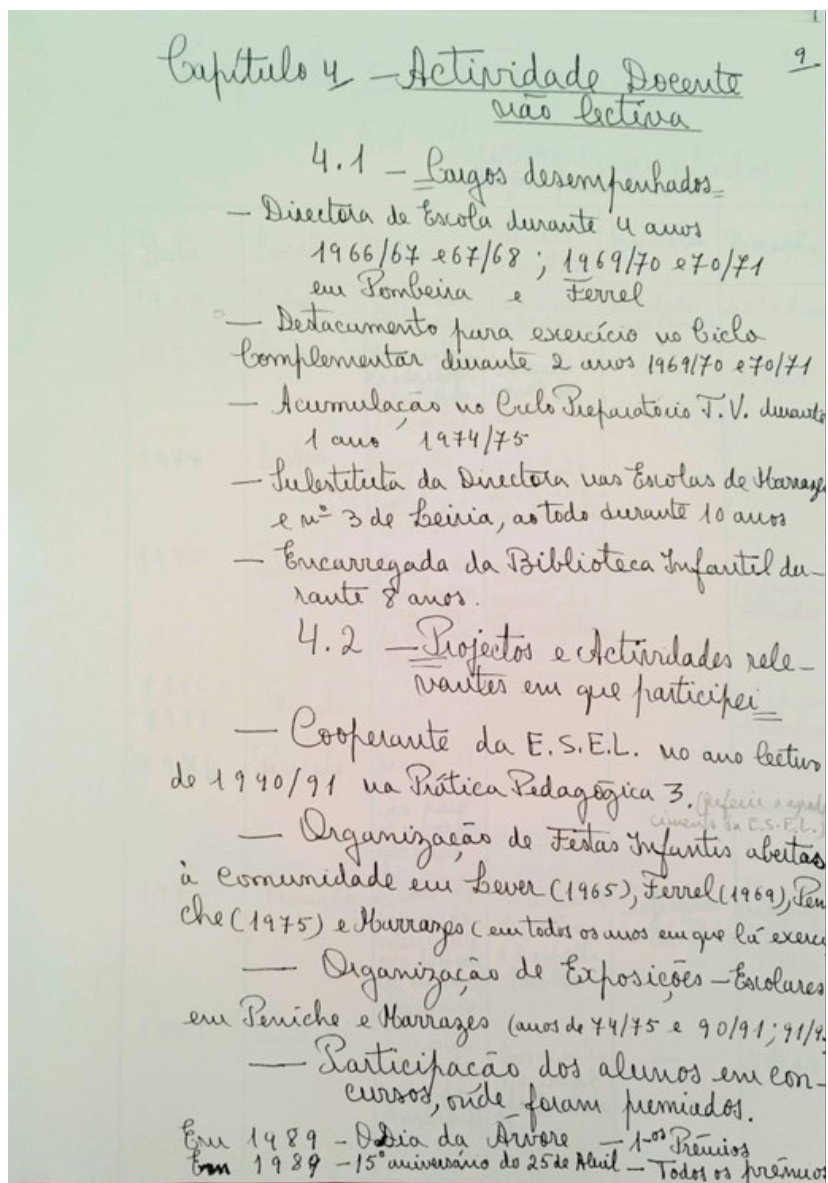 9
Capítulo 4 – Actividade Docente
não lectiva
4.1 – Cargos desempenhados
– Directora de Escola durante 4 anos
1966/67 e 67/68 ; 1969/70 e 70/71
em Pombeira e Ferrel
– Destacamento para exercício no Ciclo
Complementar durante 2 anos 1969/70 e 70/71
– Acumulação no Ciclo Preparatório T.V. durante
1 ano 1974/75
– Substituta da Directora nas Escolas de Marrazes
e nº 3 de Leiria, ao todo durante 10 anos
– Encarregada da Biblioteca Infantil du-
rante 8 anos.
4.2 – Projectos e Actividades rele-
vantes em que participei
– Cooperante da E.S.E.L. no ano lectivo
de 1990/91 na Prática Pedagógica 3. (referir o agrade
cimento da E.S.E.L.)
– Organização de Festas Infantis abertas
à comunidade em Lever (1965), Ferrel (1969), Pen
che (1975) e Marrazes (em todos os anos em que lá exerci
– Organização de Exposições – Escolares
em Peniche e Marrazes (anos de 74/75 e 90/91 ; 91/9
– Participação dos alunos em con-
cursos, onde foram premiados.
Em 1989 – O Dia da Árvore – 1.os Prémios
Em 1989 – 15º aniversário do 25 de Abril – Todos os prémios